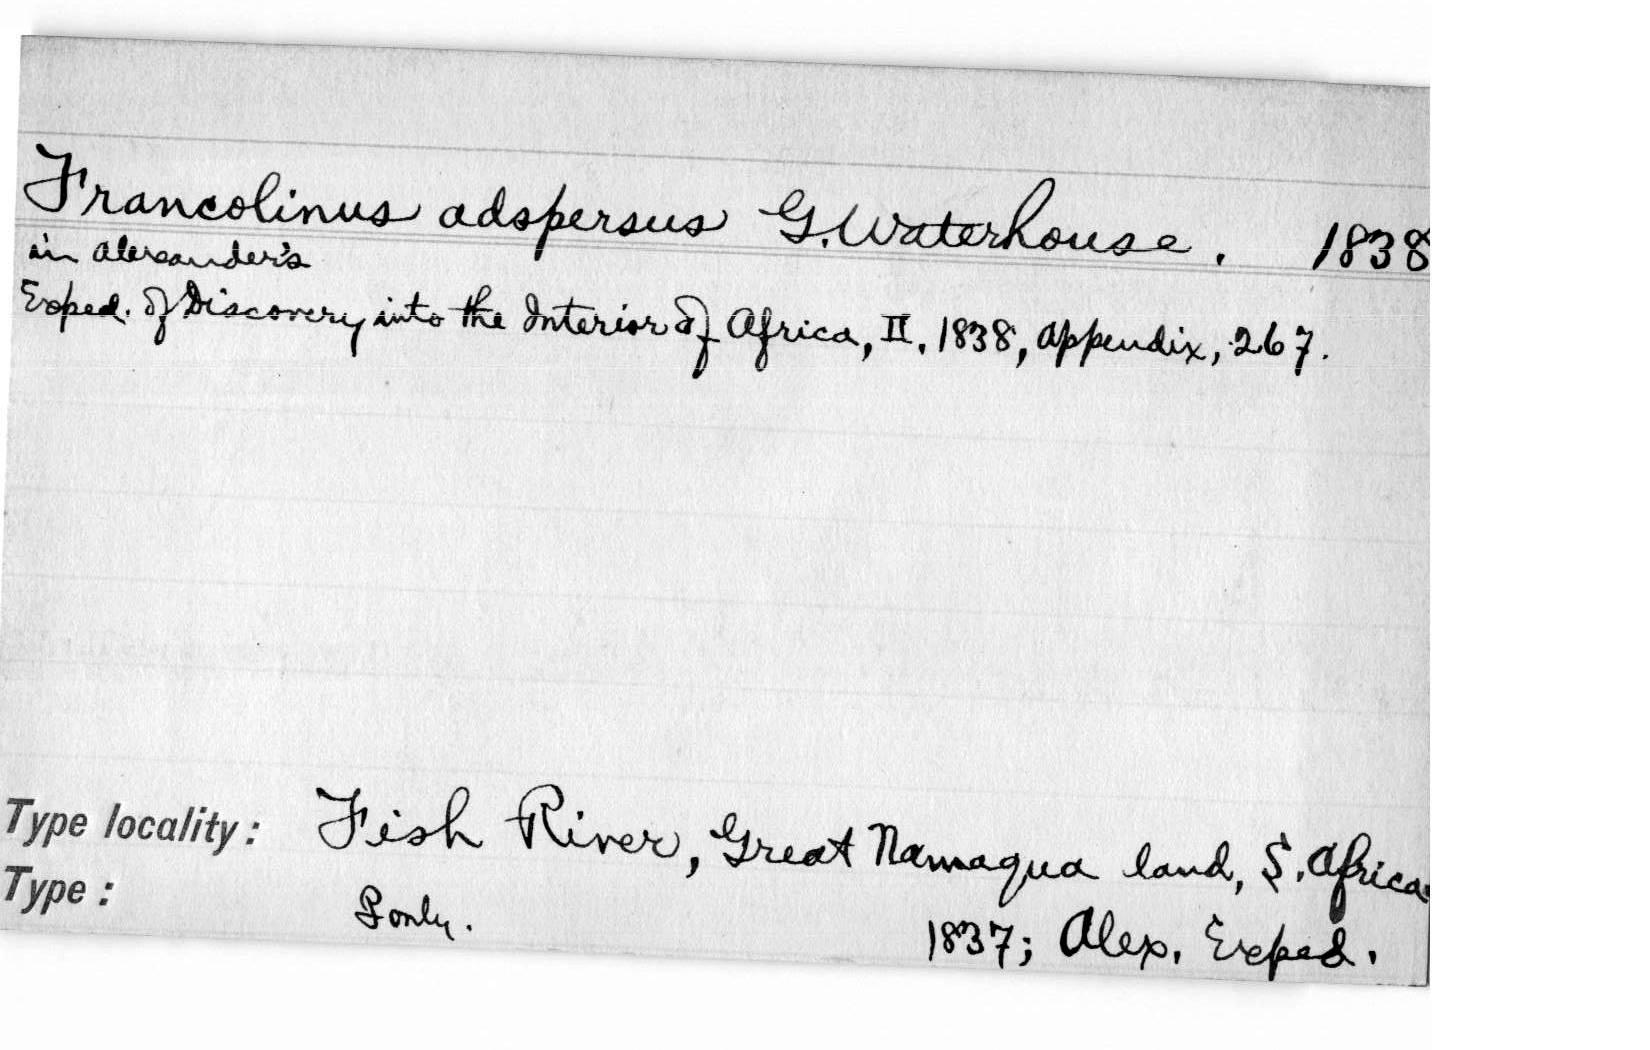 Francolinus adspersus G. Waterhouse. 1838
in Alexander's
Exped. of Discovery into the Interior of Africa, II, 1838, appendix, 267.
Type locality: Fish River, Great Namaqua land, S. Africa
Type: only.
1837; Alex. Exped.